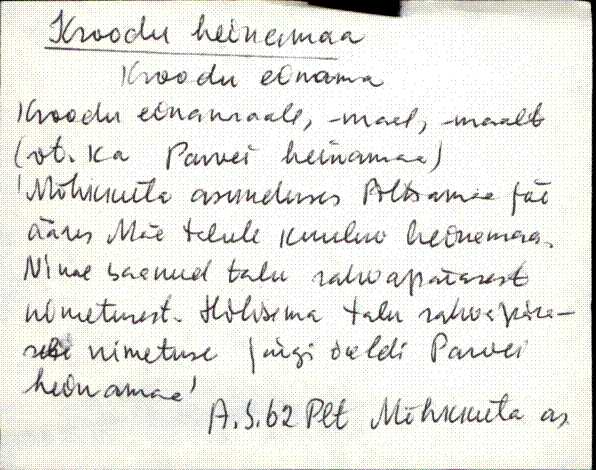 Kroodu heinamaa
Kroodu einama
Kroodu einamaale, -maal, -maalt
(vt. ka Parvei heinamaa)
'Mõhkküla asunduses Põltsamaa jõe
ääres Mäe talule kuuluv heinamaa.
Nime saanud talu rahvapärasest
nimetusest. Hilisema talu rahvapära-
se nimetuse järgi öeldi Parvei
heinamaa'
A.S.62 Plt Mõhkküla as.